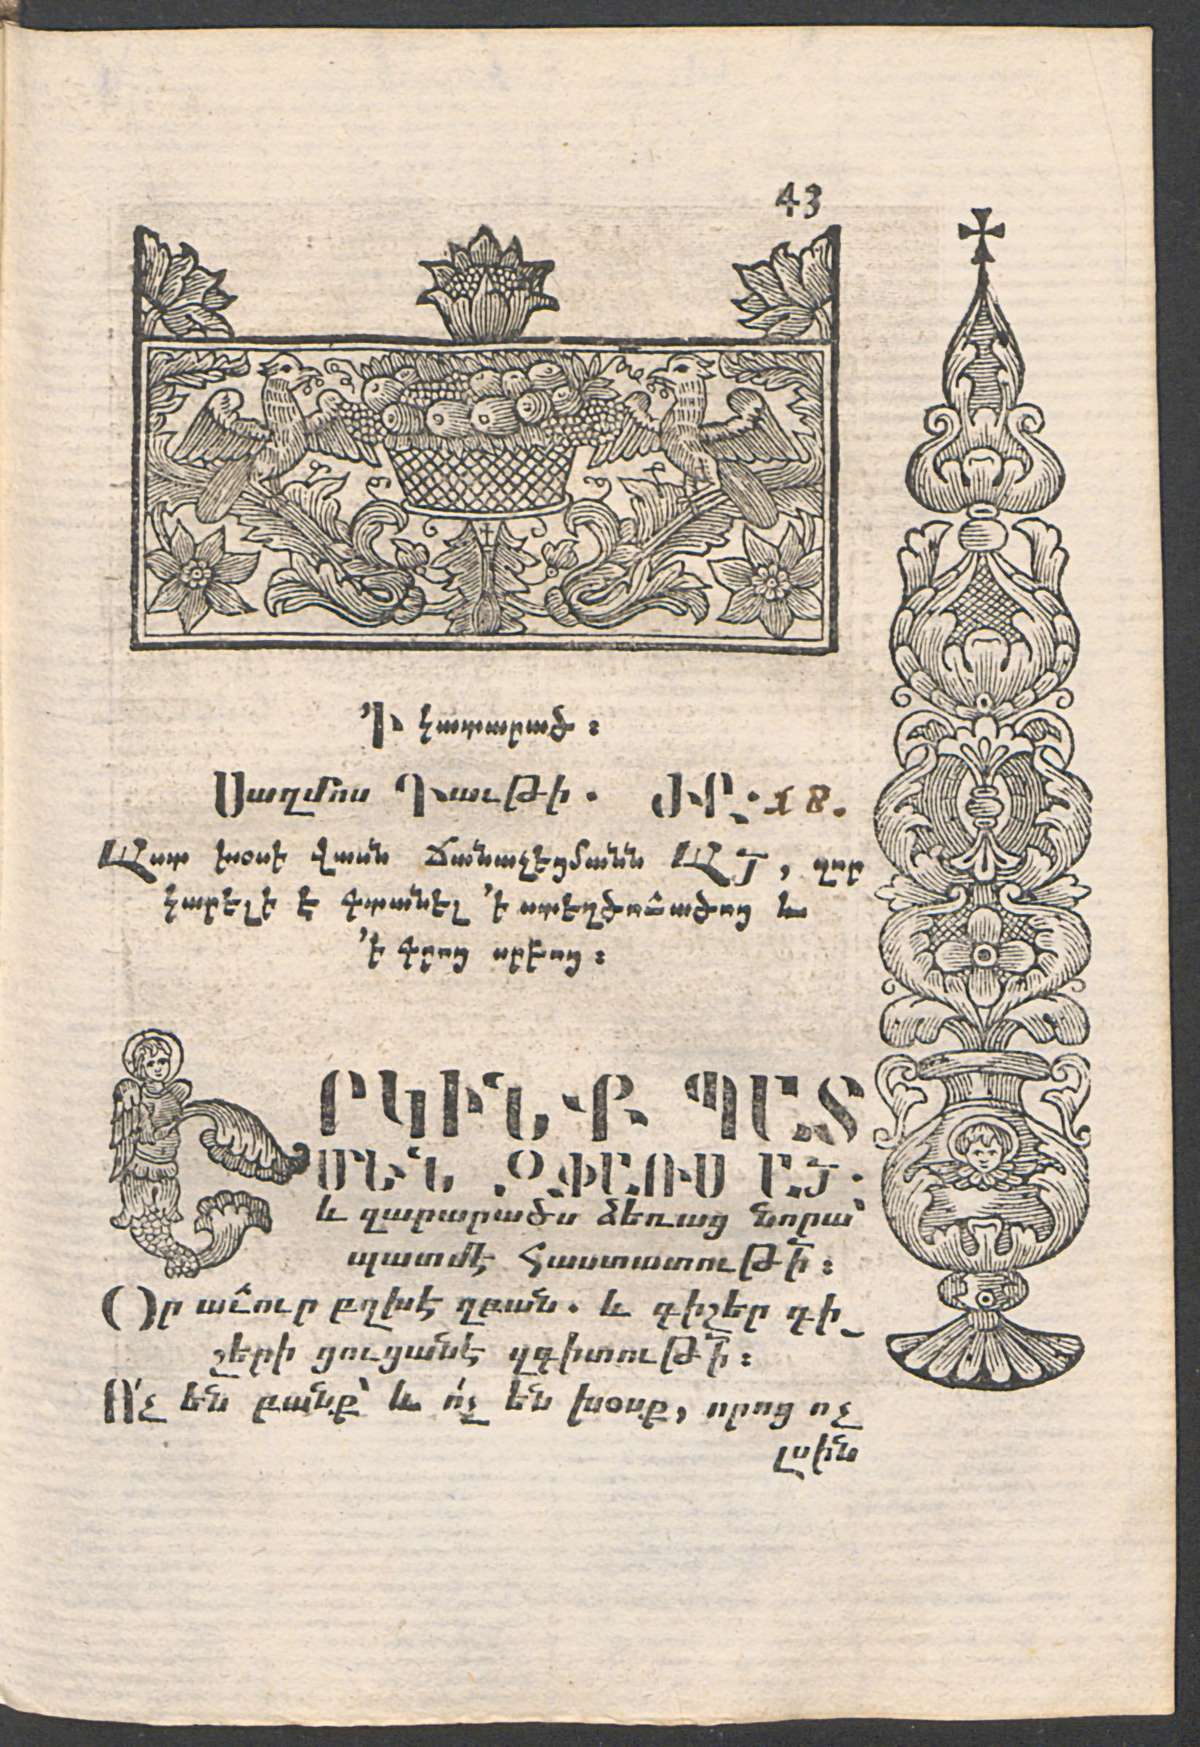 43
՚Ի կատարած :
Սաղմոս Դաւթի. ԺԸ. 18.
Աստ խօսի վասն ճանաչեցմանն ԱՅ, զոր
կարելի է գտանել ՚ի ստեղծուածոց և
՚ի գրոց սրբոց :
ԵՐԿԻՆՔ ՊԱՏ
ՄԵՆ ԶՓԱՌՍ ԱՅ.
և զարարածս ձեռաց նորա՝
պատմէ հաստատութի :
Օր աւուր բղխէ զբան. և գիշեր գի֊
շերի ցուցանէ զգիտութի :
Ո՛չ են բանք՝ և ո՛չ են խօսք, որոց ոչ
լսին